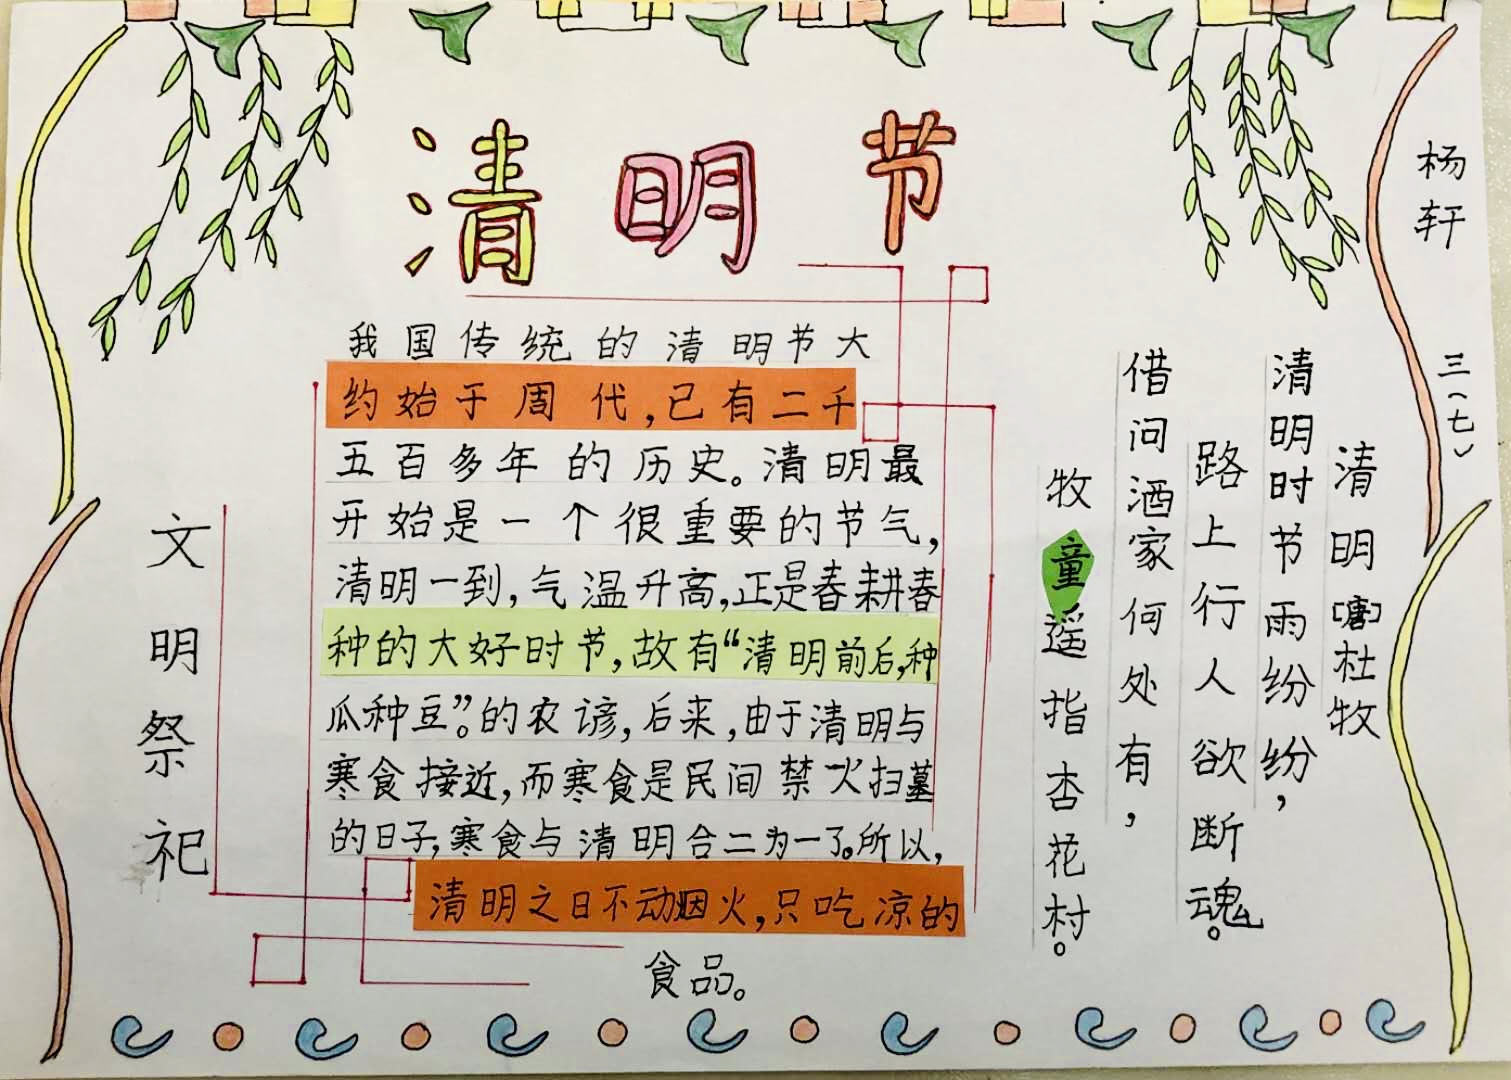 清明节
我国传统的清明节大
约始于周代,已有二千
五百多年的历史。清明最
开始是一个很重要的节气,
清明一到,气温升高,正是春耕春
种的大好时节,故有“清明前后,种
瓜种豆”。的农谚,后来,由于清明与
寒食接近,而寒食是民间禁火扫墓
的日子,寒食与清明合二为一了。所以,
清明之日不动烟火,只吃凉的
食品。
文明祭祀
清明【唐】杜牧
清明时节雨纷纷,
路上行人欲断魂。
借问酒家何处有,
牧童遥指杏花村。
杨轩
三(七)